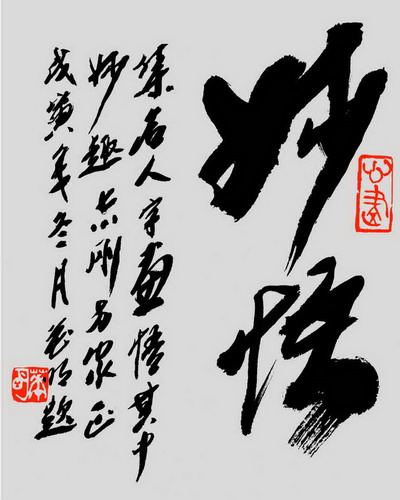 妙悟
集名人字画悟其中
妙趣志刚方家正
戊寅年冬月
题